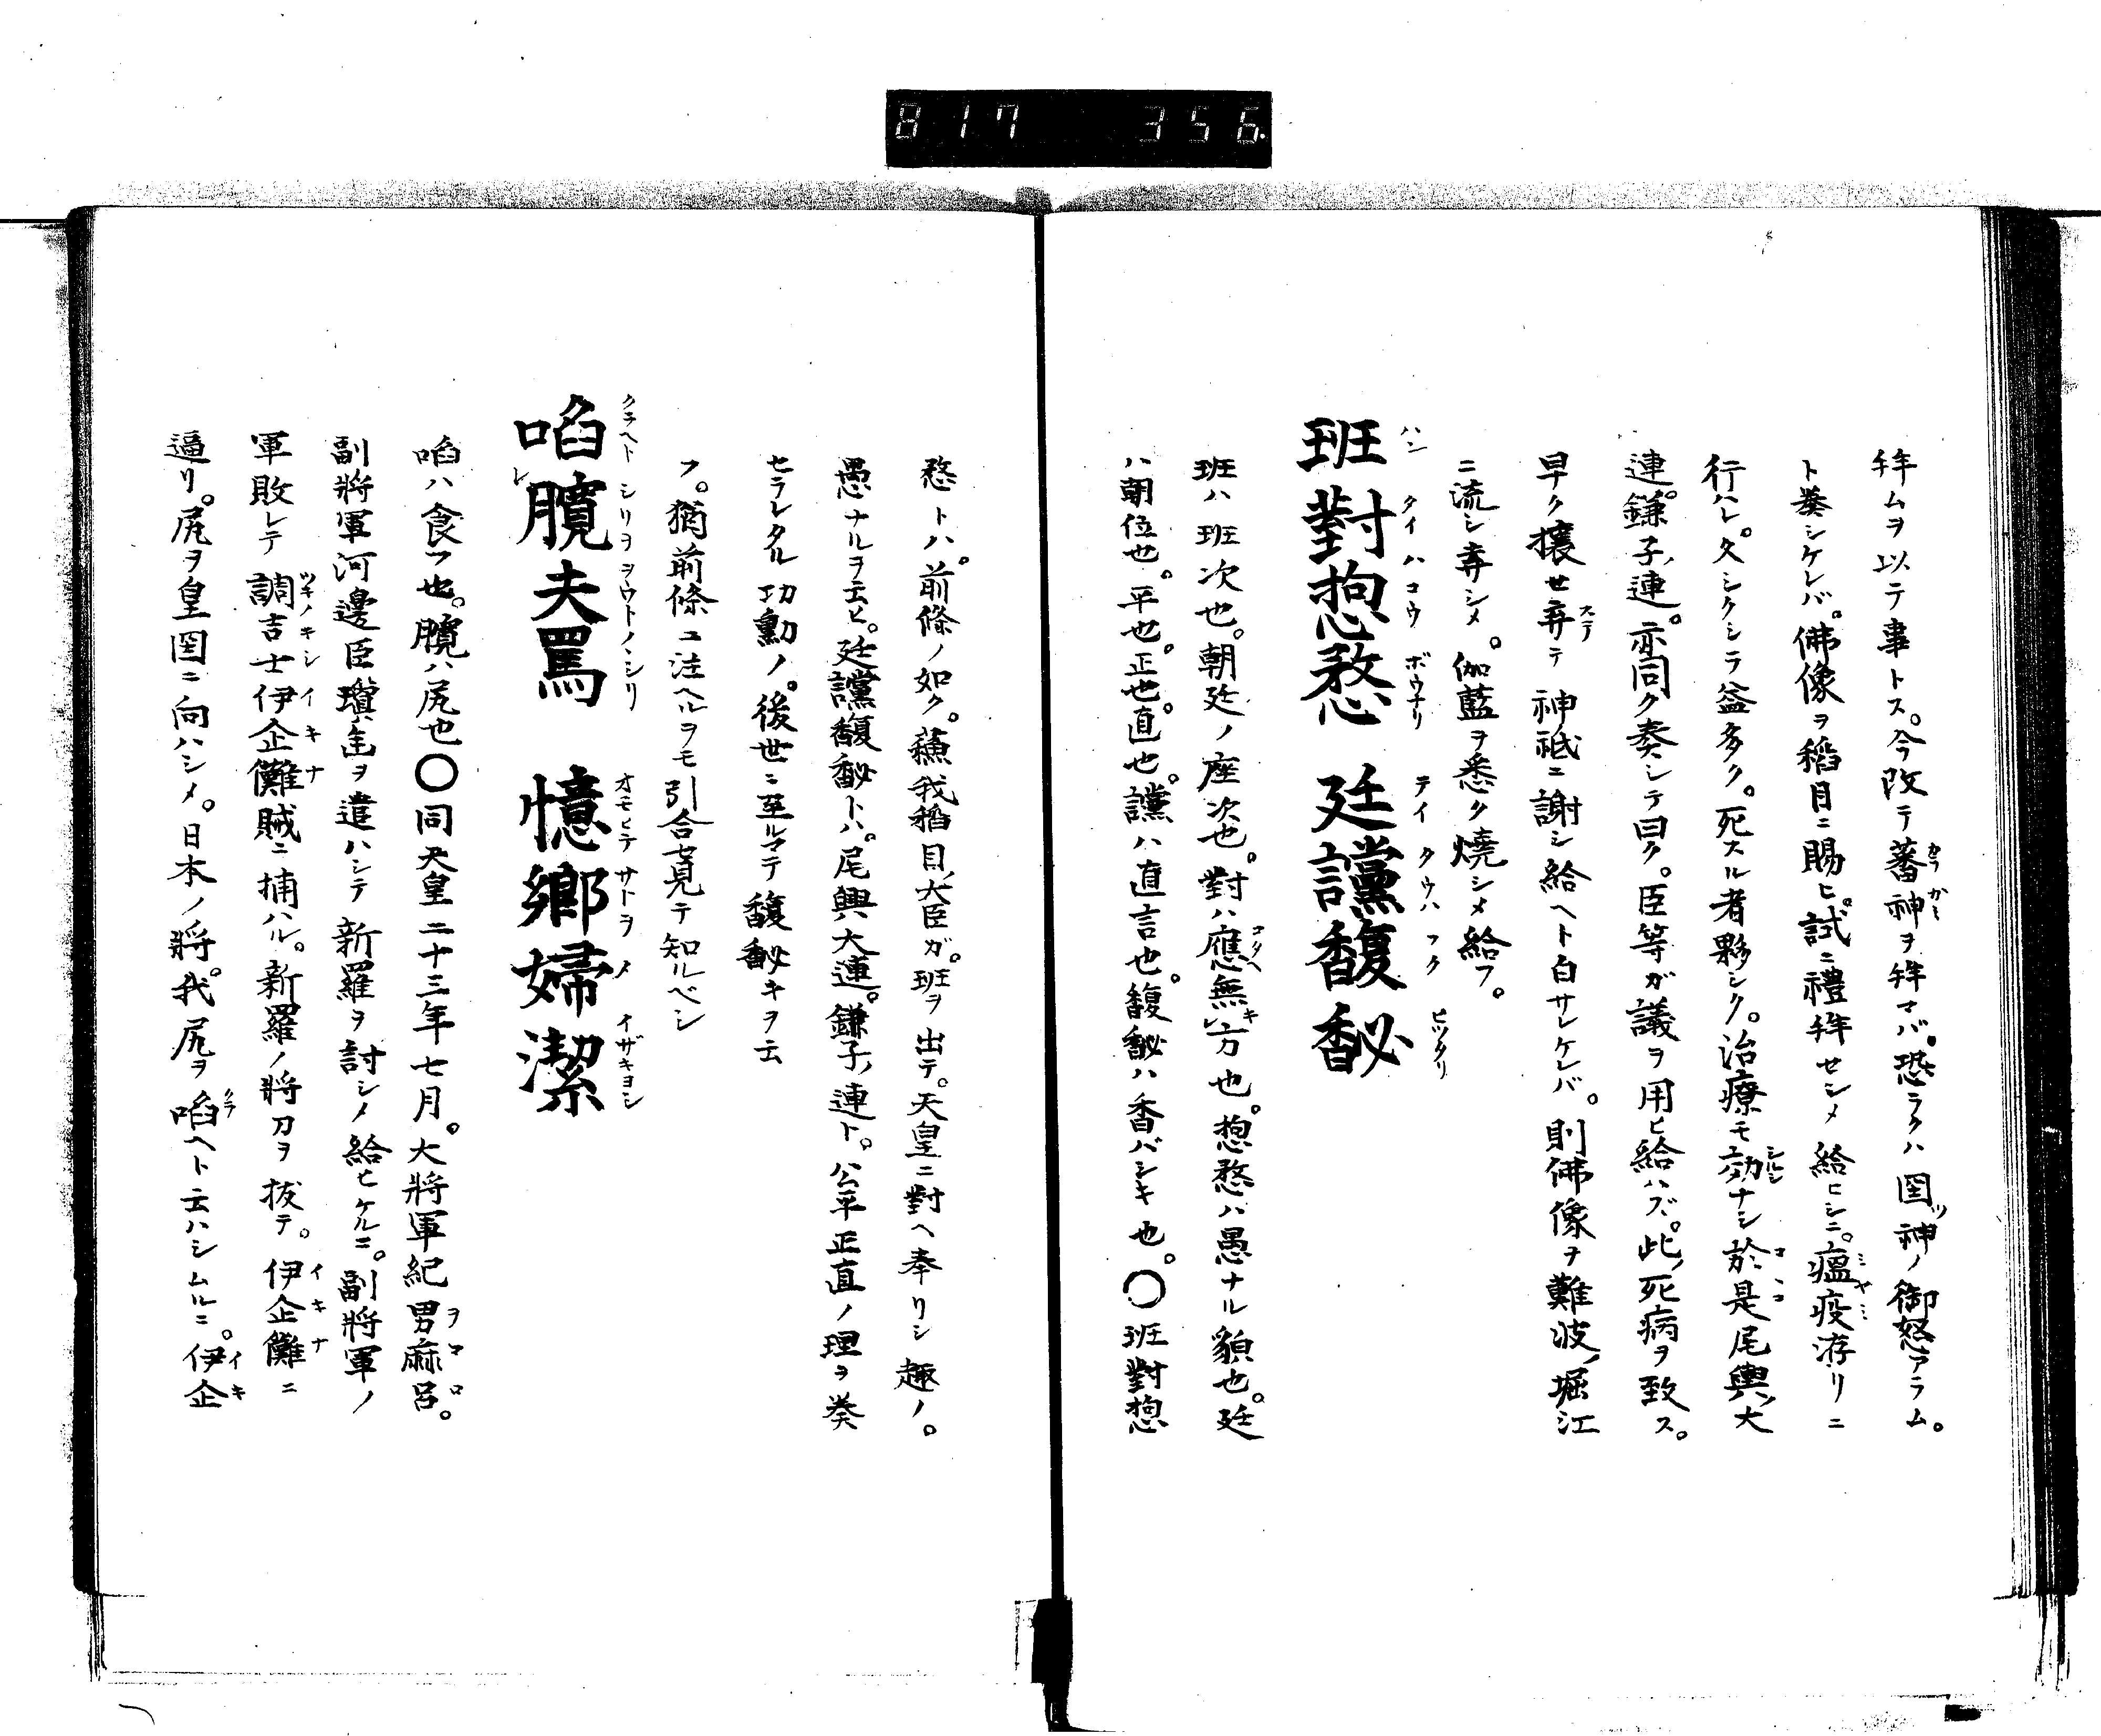 817 356.
拜ムヲ以テ事トス。今改テ蕃神ヲ拜マバ。恐ラクハ国ツ神ノ御怒アラム。
ト奏シケレバ。佛像ヲ稻目ニ賜ヒ。試ニ禮拜セシメ給ヒシニ。瘟疫洊リニ
行ハレ。久シクシテ益多ク。死スル者夥シク。治療モ効ナシ於是尾輿ノ大
連。鎌子ノ連。亦同ク奏シテ曰ク。臣等ガ議ヲ用ヒ給ハズ。此ノ死病ヲ致ス。
早ク攘セ弃テ神祗ニ謝シ給ヘト白サレケレバ。則佛像ヲ難波ノ堀江
ニ流シ弃シメ。伽藍ヲ悉ク燒シメ給フ。
班對㧾愗 廷讜馥馝
班ハ班次也。朝廷ノ座次也。對ハ應無方也。㧾愗ハ愚ナル貌也。廷
ハ朝位也。平也。正也。直也。讜ハ直言也。馥馝ハ香バシキ也。〇班對㧾
愗トハ。前條ノ如ク。蘓我稻目ノ大臣ガ。班ヲ出テ。天皇ニ對ヘ奉リシ趣ノ。
愚ナルヲ云ヒ。廷讜馥馝トハ。尾興大連。鎌子ノ連ト。公平正直ノ理ヲ奏
セラレタル功勳ノ。後世ニ至ルマテ馥馝キヲ云
フ。猶前條ニ注ヘルヲモ引合セ見テ知ルベシ
啗臗夫罵 憶鄉婦潔
啗ハ食フ也。臗ハ尻也〇同天皇二十三年七月。大將軍紀男麻呂。
副將軍河邊臣瓊缶ヲ遣ハシテ新羅ヲ討シメ給ヒケルニ。副將軍ノ
軍敗レテ調吉士伊企儺賊ニ捕ハル。新羅ノ將刀ヲ拔テ。伊企儺ニ
逼リ。尻ヲ皇国ニ向ハシメ。日本ノ將。我尻ヲ啗ヘト云ハシムルニ。伊企